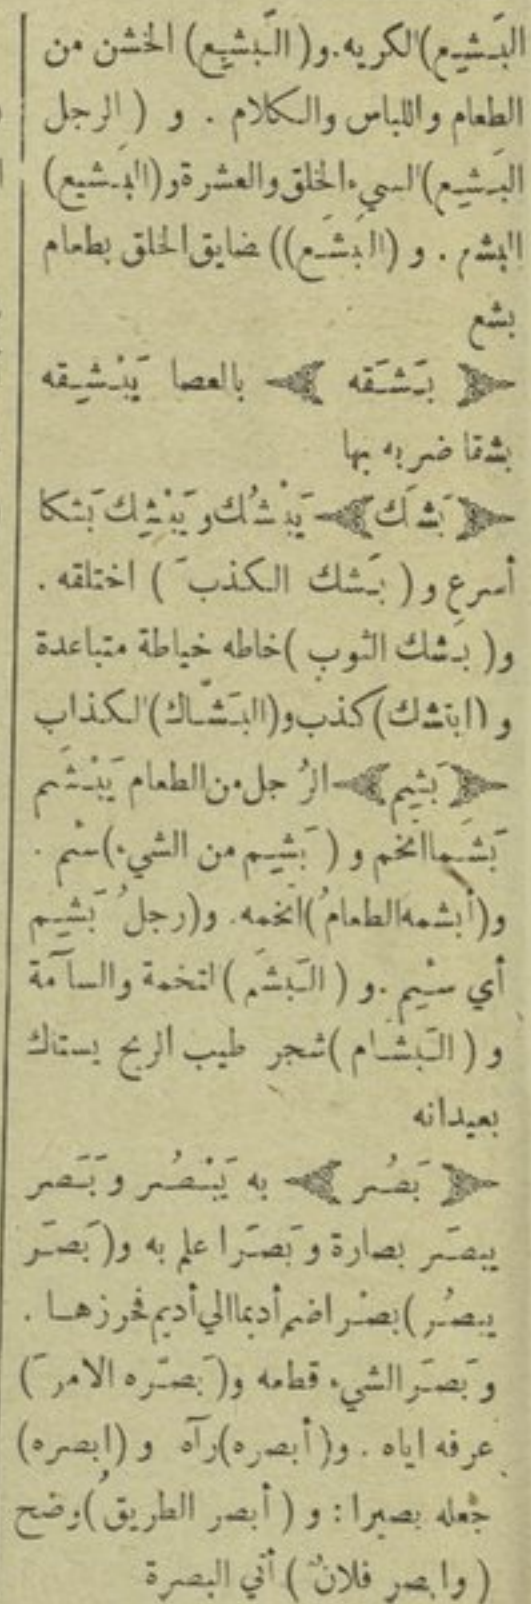 البَشِيع) الكريه. و( البَشِيع) الخشن من
الطعام واللباس والكلام . و ( الرجل
البَشِيع) السيء الخلق والعشرة و (البَشيع)
البشع . و (البَشَع)) ضايق الخلق بطعام
بشع
﴿ بَشَقه ﴾ بالعصا يَبْشِقه
بشقا ضربه بها
﴿ بَشَك ﴾ يَبْشُك و يَبْشِك بَشكا
أسرع و ( بَشك الكذبَ ) اختلقه .
و( بشك الثوب )خاطه خياطة متباعدة
و (ابتشك) كذب و(البَشّاك) الكذاب
﴿ بَشِم ﴾ الرُجل من الطعام يَبْشَم
بَشَما اتخم و ( بَشِم من الشيء) سئم .
و(أبشمه الطعامُ )اتخمه. و(رجلُ بَشِيم
أي سئيم . و ( البَشَم ) التخمة والسآمة
و ( البَشام )شجر طيب الريح يستاك
بعيدانه
﴿ بَصُر ﴾ به يَبْصُر و بَصَر
يبصَر بصارة و بَصَرا علم به و( بَصَر
يبصُر) بصْرا ضم أديما الي أديم فخرزها .
و بَصَر الشيء قطعه و( بَصّره الامرَ )
عرفه اياه . و( أبصره)رآه و (ابصره)
جعله بصيرا : و ( أبصر الطريقُ )وضح
( وابصر فلانٌ ) أتي البصرة